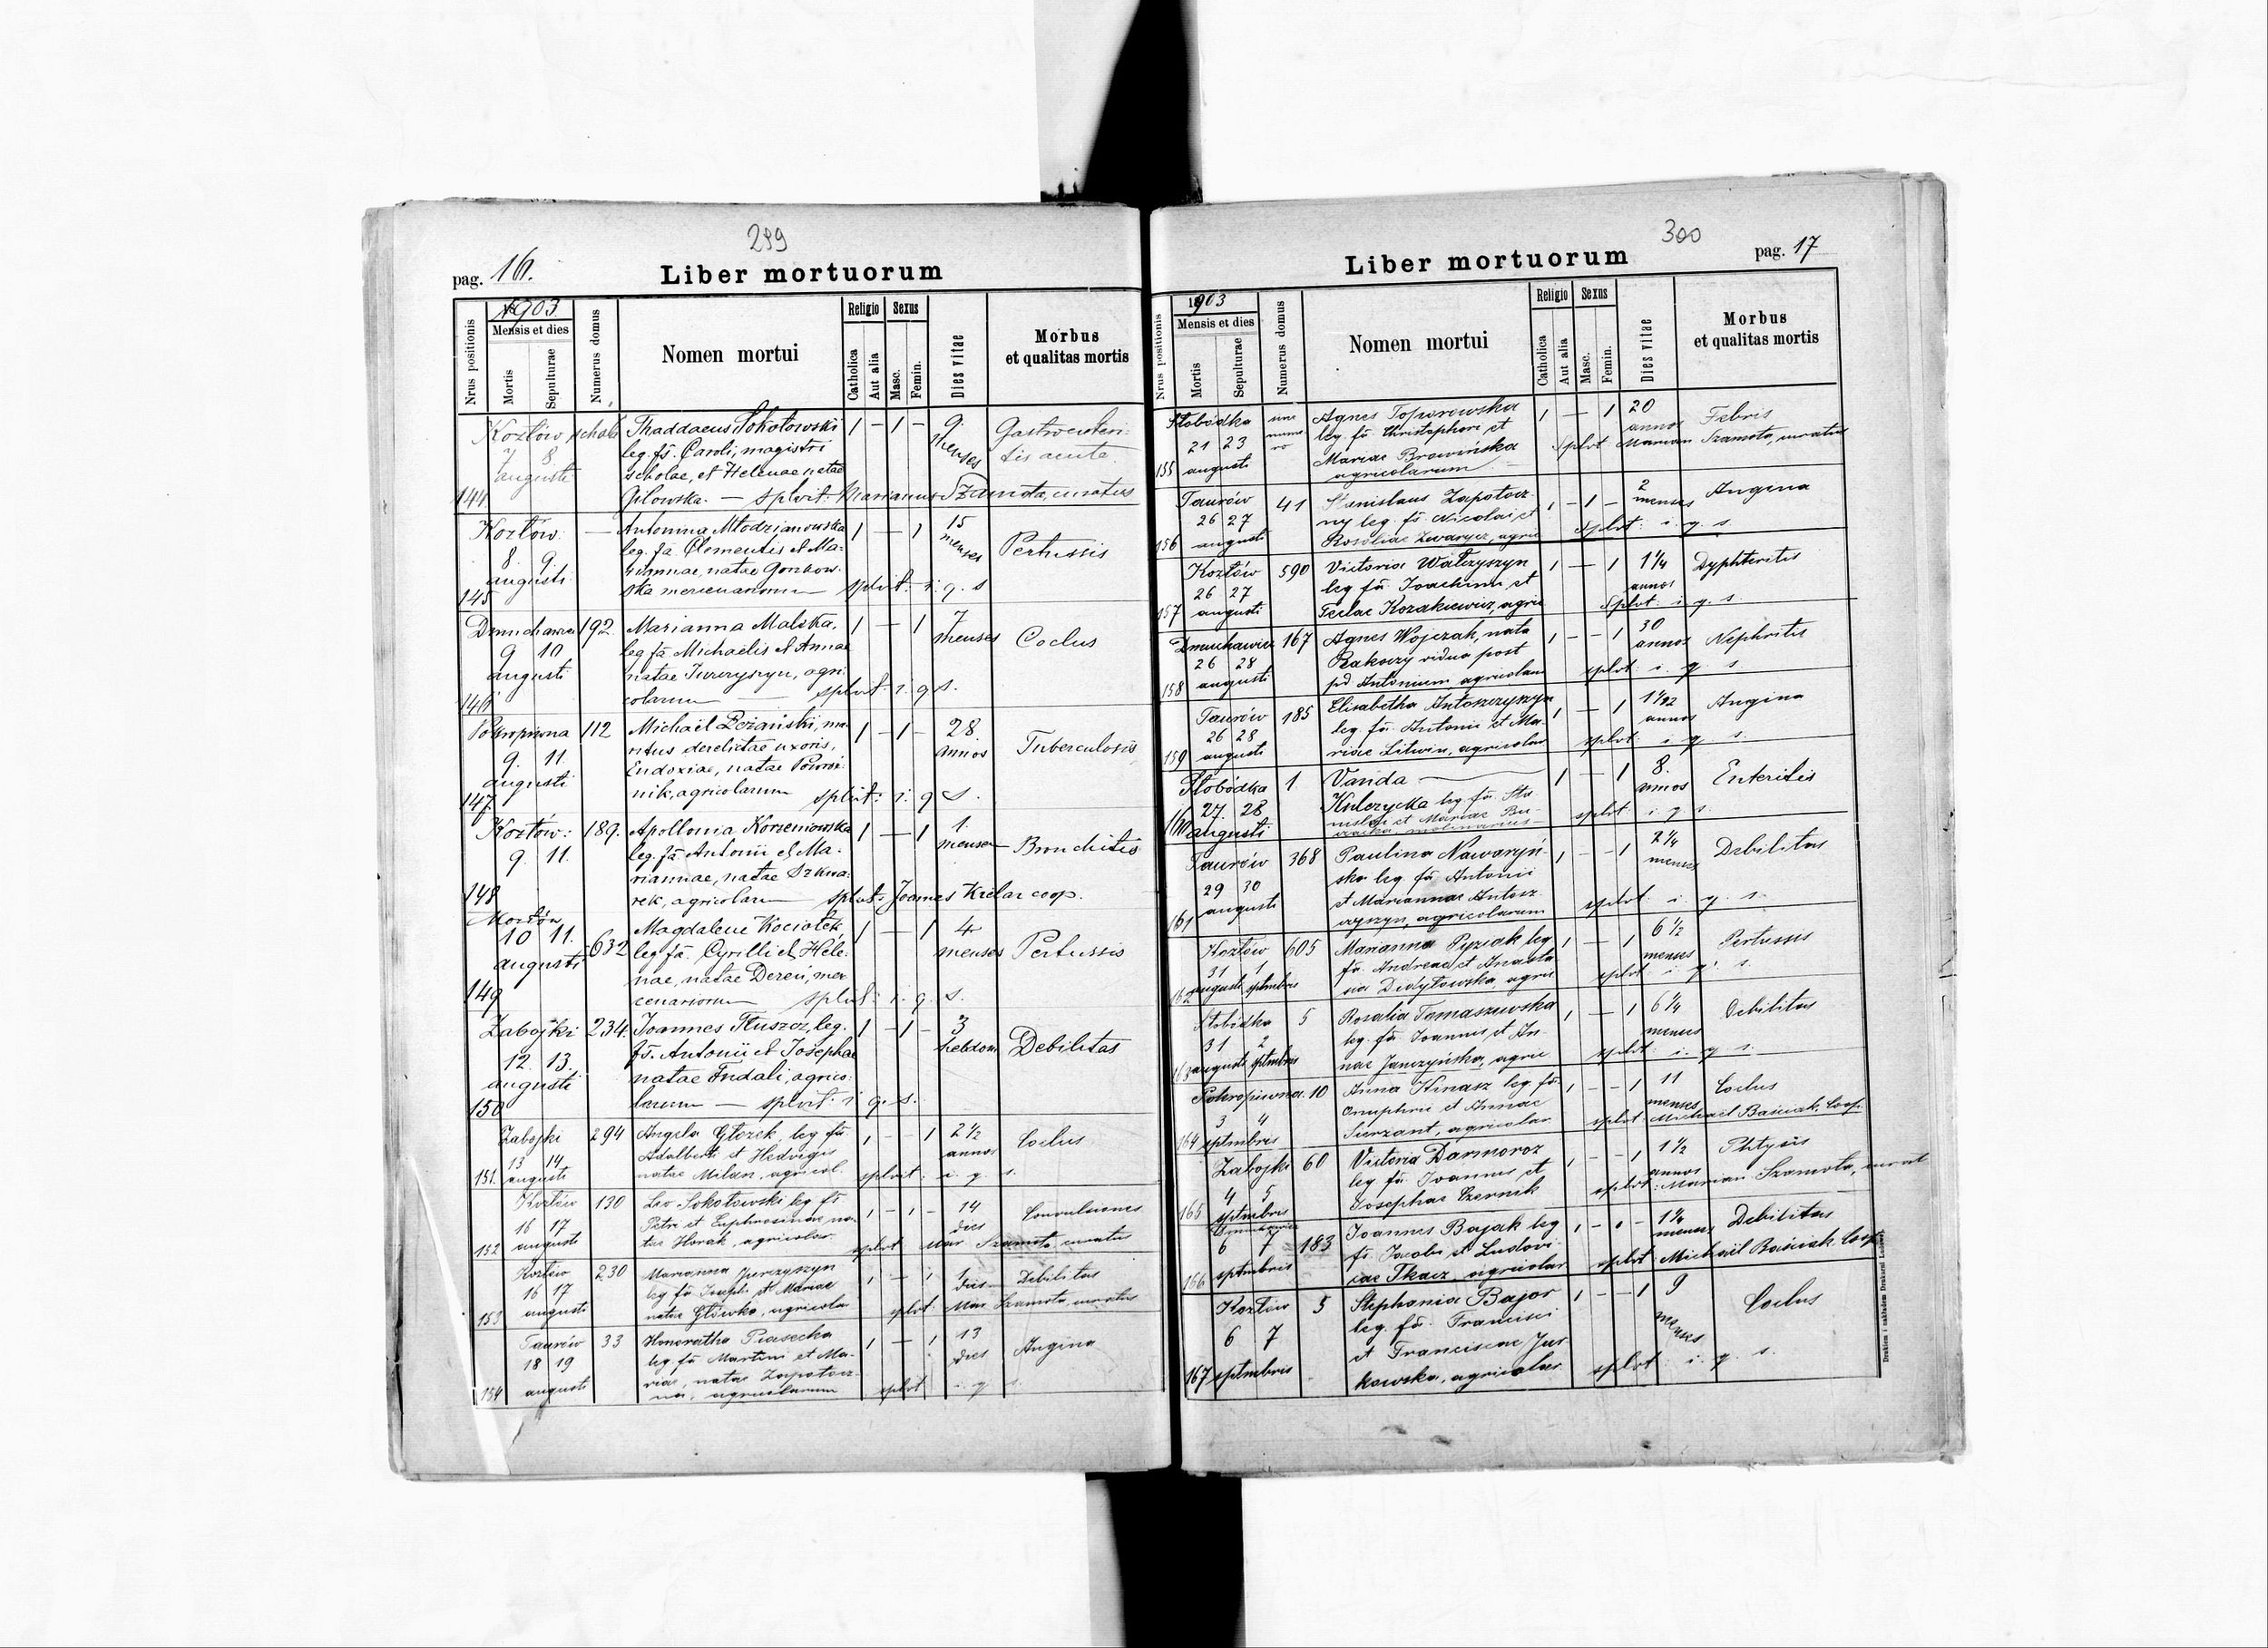 299
pag. 16.
Liber mortuorum
Nrus positionis
1903.
Mensis et dies
Mortis
Sepulturae
Numerus domus
Nomen mortui
Religio
Catholica
Aut alia
Sexus
Masc.
Femin.
Dies vitae
Morbus
et qualitas mortis
Kozłów schola Thaddaeus Sokołowski 1 – 1 – 9.
7 8 leg. fs. Caroli, magistri menses Gastroenteri-
augusti scholae, et Helenae natae tis acuta
144 Gilowska. — splvit: Marianus Szamota, curatus
Kozłów. — Antonina Młodzianowska 1 – 1 15
8. 9. leg. fa Clementis et Ma- menses Pertussis
augusti riannae, natae Gonkow-
145 ska mercenariorum splvit: i. q. s
Dmuchawiec 192. Marianna Malska, 1 – 1 7
9 10 leg fa Michaelis et Annae menses Coclus
augusti natae Jurczyszyn, agri-
146 colarum splvit: i. q s.
Pokropiwna 112 Michael 1 – 1 – 28.
9. 11. ritus derelictae uxoris, annos Tuberculosis
augusti Eudoxiae, natae
147 nik, agricolarum splvit: i. q s.
Kozłów: 189. Apollonia Korzeniowska 1 – 1 1.
9. 11. leg. fa Antonii et Ma- mensem Bronchitis
riannae, natae Szkwa-
148 rek, agricolarum splvit: Joannes Krelar coop.
Kozłów Magdalene Kociołek 1 – 1 4
10 11. 632 leg. fa. Cyrilli et Hele- menses Pertussis
augusti nae, natae Dereń, mer-
149 cenariorum splvit: i. q. s.
Zabojki 234. Joannes Tłuszcz, leg. 1 – 1 – 3
12. 13. fs. Antonii et Josephae hebdom Debilitas
augusti natae Fudali, agrico-
150 larum — splvit: i q. s.
Zabojki 294 Angela Głozek leg fa 1 – – 1 2½ Coclus
13 14 Adalberti et Hedvigis annos
151. augusti natae Milan, agricol. splvit: i. q. s.
Kozłów 130 Leo Sokołowski leg fs 1 – 1 – 14 Convulsiones
16 17 Petri et Euphrosinae na- dies
152 augusti tae Horak, agricolar. splvit Mar Szamota, curatus
Kozłów 230 Marianna Jurczyszyn 1 – 1 1 Debilitas
16 17 leg fa Josephi et Mariae diem
153 augusti natae Główka, agricola splvit: Mar Szamota, curatus
Taurów 33 Honoratha Piasecka 1 – 1 13 Angina
18 19 leg. fa Martini et Ma- dies
riae, natae Zapotocz-
154 augusti na, agricolarum splvit i. q s
300
Liber mortuorum
pag. 17
Nrus positionis
1903
Mensis et dies
Mortis
Sepulturae
Numerus domus
Nomen mortui
Religio
Catholica
Aut alia
Sexus
Masc.
Femin.
Dies vitae
Morbus
et qualitas mortis
Słobódka sine Agnes Toporowska 1 – 1 20 Febris
21 23 nume- leg. fa Christophori et annos
155 augusti ro Mariae Browińska Splvt Marian Szamota, curatus
agricolarum
Taurów 41 Stanislaus Zapotocz- 1 – 1 – 2 Angina
26 27 ny leg. fs Nicolai et menses
156 augusti Rosaliae Zwarycz, agric Splvt: i. q. s.
Kozłów 590 Victoria Walczyszyn 1 – 1 1¼ Dyphteritis
26 27 leg fa. Joachimi et annos
157 augusti Teclae Kozakiewicz, agric Splvt: i. q. s.
Dmuchawiec 167 Agnes Wojczak, nata 1 – – 1 30 Nephritis
26 28 Rakoczy vidua post annos
158 augusti pd Antonium agricolam splvt: i. q s
Taurów 185 Elisabetha Antoszczyszyn 1 – 1 annos Angina
26 28 leg. fa Antonii et Ma-
159 augusti riae Litwin, agricolar splvt: i. q. s.
Słobódka 1 Vanda 1 – 1 8. Enteritis
27. 28 Kulczycka leg. fa. Sta- annos
160 augusti nislai et Mariae splvt i q s.
molinarius
Taurów 368 Paulina Nawaryń- 1 – – 1 2¼ Debilitas
29 30 ska leg. fa Antonii menses
augusti et Mariannae Antosz-
161 czyszyn, agricolarum splvt i. q. s.
Kozłów 605 Marianna Pyziak leg 1 – 1 6½ Pertussis
31 1 fa. Andreae et Anasta- menses
162 augusti septmbris sia Didytowska, agric splvt i q. s.
Słobódka 5 Rosalia Tomaszewska 1 – 1 6¼ Debilitas
31 2 leg. fa. Joannis et An- menses
163 augusti septmbris nae Janczyńska, agric splvt: i. q s.
Pokropiwna. 10 Anna Kinasz leg fa. 1 – – 1 11 Coclus
3 4 Onuphrii et Annae menses
164 septmbris Surzant, agricolar splvt. Michael Baściak, Coop.
Zabojki 60 Victoria Darmoroz 1 – – 1 1½ Phtysis
4 5 leg fa. Joannis et annos
165 septmbris Josephae Czernik splvt: Marian Szamota, curat
Dmuchawiec Joannes Bajak leg 1 – 1 – 1¼ Debilitas
6 7 183 fs. Jacobi et Ludovi- menses
166 septmbris cae Tkacz, agricolar splvt Michaël Baściak, Coop
Kozłów 5 Stephania Bajor 1 – – 1 9 Coclus
6 7 leg. fa. Francisci menses
et Franciscae Jur-
167 septmbris kowska, agricolar splvt: i. q. s.
Drukiem i nakładem Drukarni Ludowej